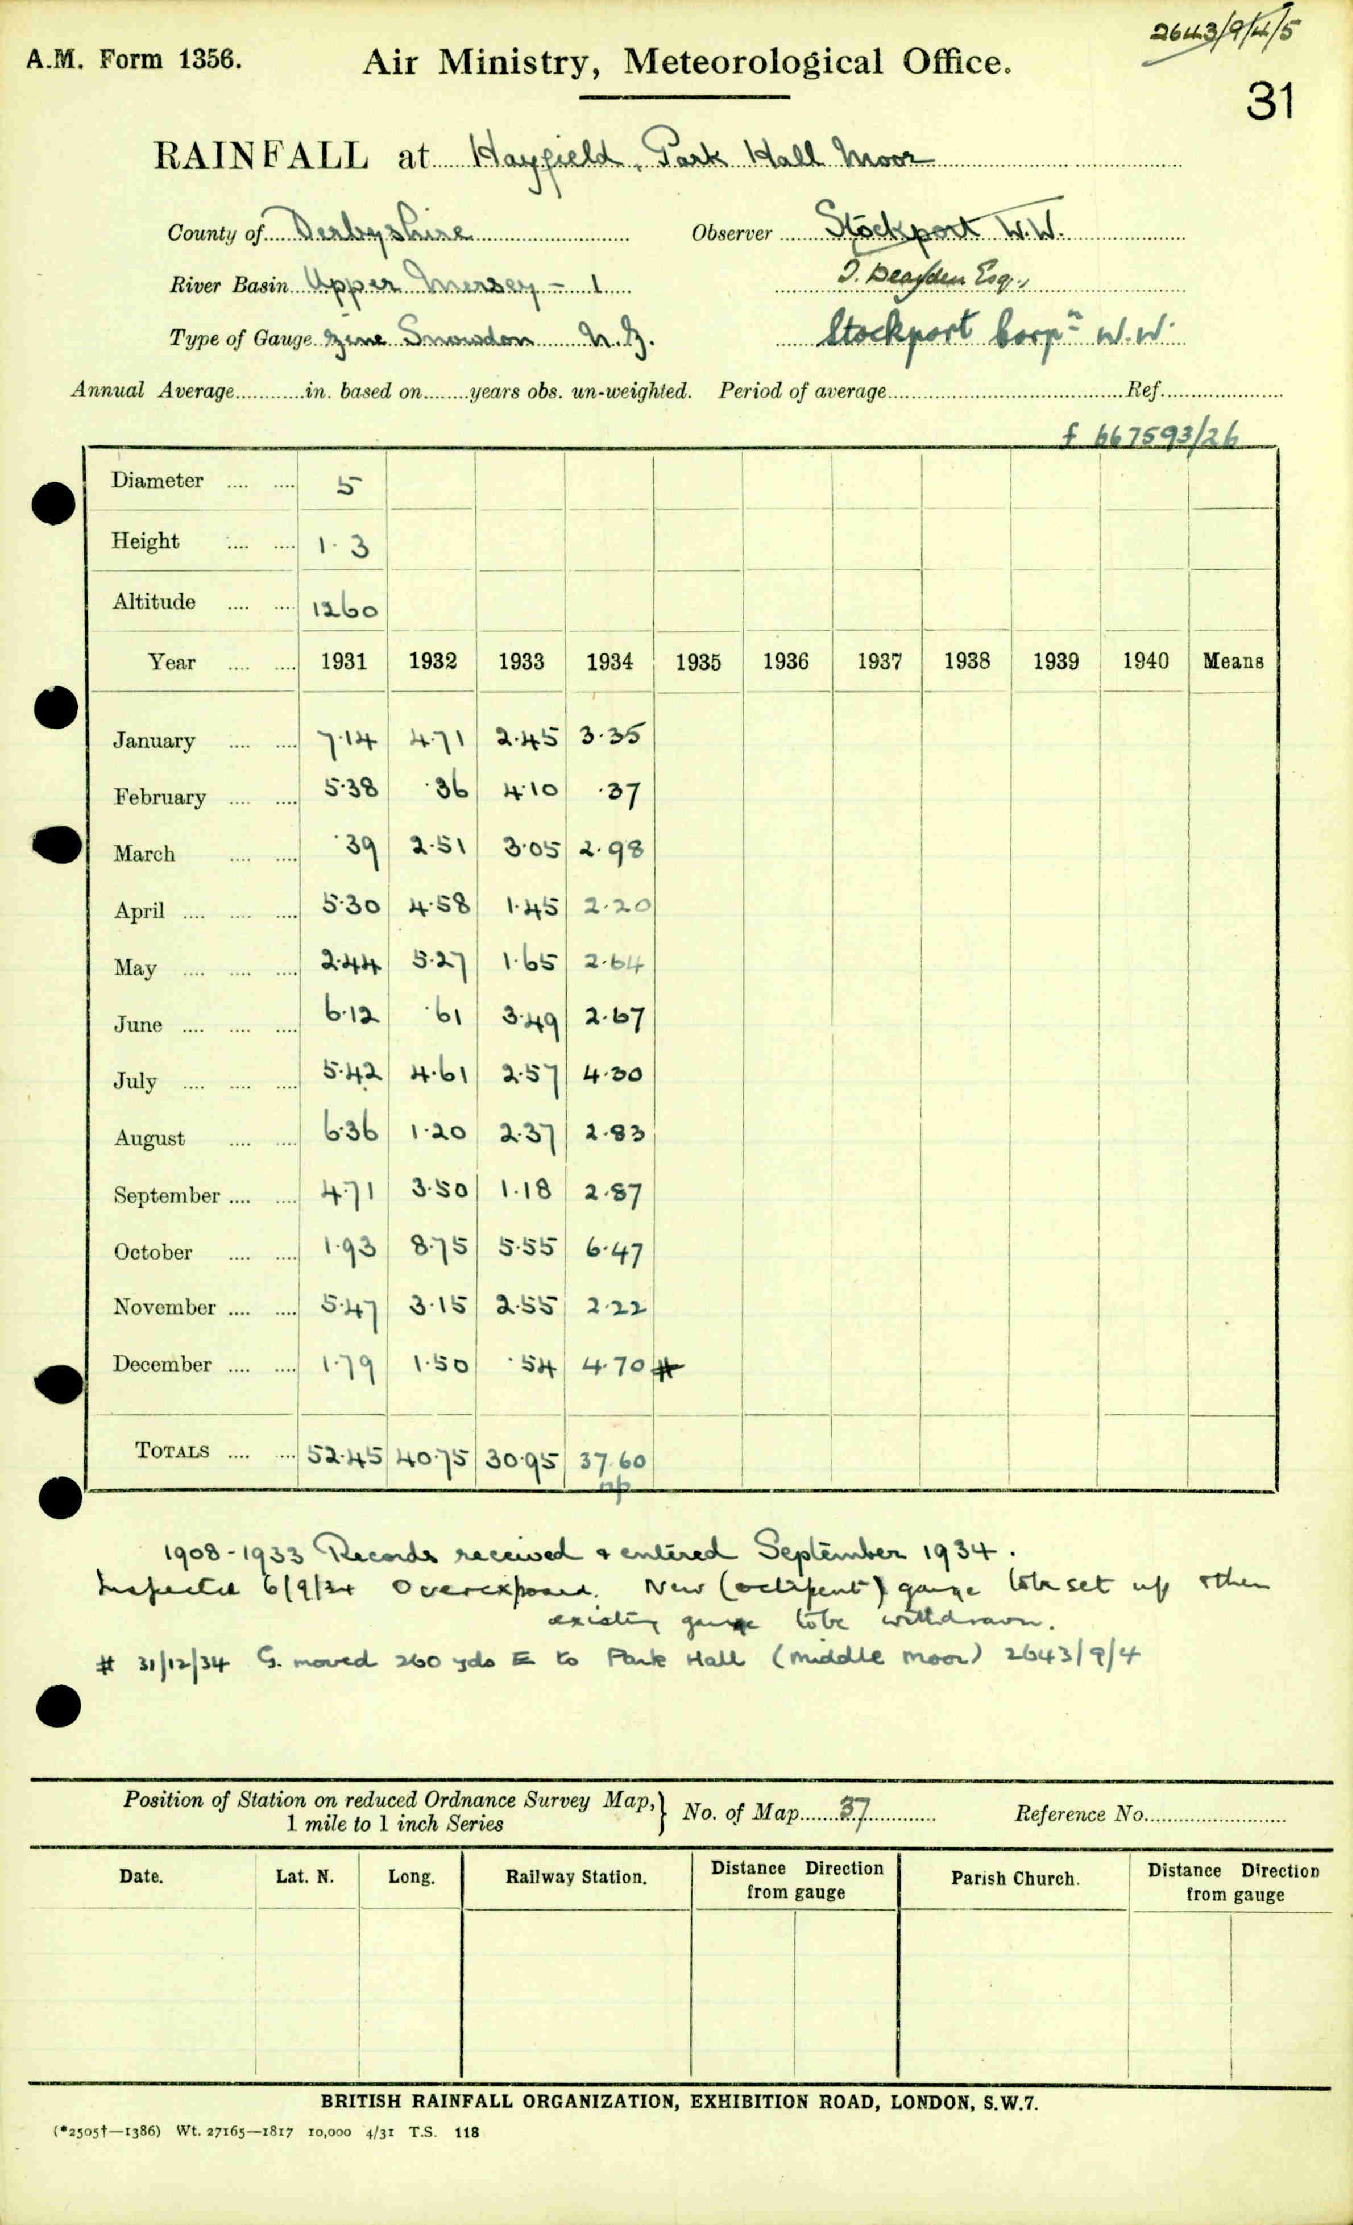 2643/9/4/5
A.M. Form 1356. Air Ministry, Meteorological Office.
31
RAINFALL at Hayfield, Park Hall Moor
County of Derbyshire Observer Stockport W.W.
River Basin Upper Mersey - 1 Esq.,
Type of Gauge zinc Snowdon Stockport Corpn W.W.
Annual Average............in. based on........years obs. un-weighted. Period of average........................................Ref.....................
f 667593/26
Diameter .... .... 5
Height .... .... 1.3
Altitude .... .... 1260
Year .... .... 1931 1932 1933 1934 1935 1936 1937 1938 1939 1940 Means
January .... .... 7.14 4.71 2.45 3.35
February .... .... 5.38 .36 4.10 .37
March .... .... .39 2.51 3.05 2.98
April .... .... .... 5.30 4.58 1.45 2.20
May .... .... .... 2.44 5.27 1.65 2.64
June .... .... .... 6.12 .61 3.49 2.67
July .... .... .... 5.42 4.61 2.57 4.30
August .... .... 6.36 1.20 2.37 2.83
September .... .... 4.71 3.50 1.18 2.87
October .... .... 1.93 8.75 5.55 6.47
November .... .... 5.47 3.15 2.55 2.22
December .... .... 1.79 1.50 .54 4.70 #
TOTALS .... .... 52.45 40.75 30.95 37.60
1908-1933 Records received & entered September 1934.
Inspected 6/9/34 Overexposed. New (octapent) gauge to be set up & then
existing gauge to be withdrawn.
# 31/12/34 G. moved 260 yds E to Park Hall (Middle Moor) 2643/9/4
Position of Station on reduced Ordnance Survey Map, } No. of Map 37 Reference No..........................
1 mile to 1 inch Series
Date. Lat. N. Long. Railway Station. Distance Direction from gauge Parish Church. Distance Direction from gauge
BRITISH RAINFALL ORGANIZATION, EXHIBITION ROAD, LONDON, S.W.7.
(*2505†—1386) Wt. 27165—1817 10,000 4/31 T.S. 118